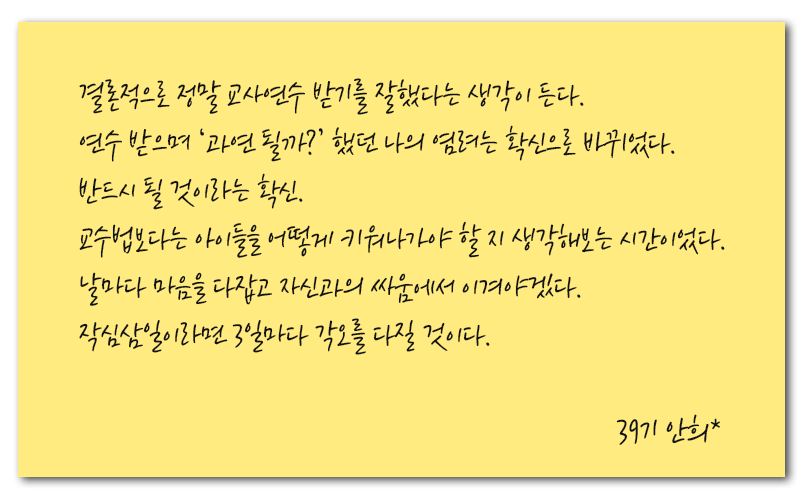 결론적으로 정말 교사연수 받기를 잘했다는 생각이 든다.
연수 받으며 '과연 될까?' 했던 나의 염려는 확신으로 바뀌었다.
반드시 될 것이라는 확신.
교수법보다는 아이들을 어떻게 키워나가야 할 지 생각해보는 시간이었다.
날마다 마음을 다잡고 자신과의 싸움에서 이겨야겠다.
작심삼일이라면 3일마다 각오를 다질 것이다.
39기 안희*